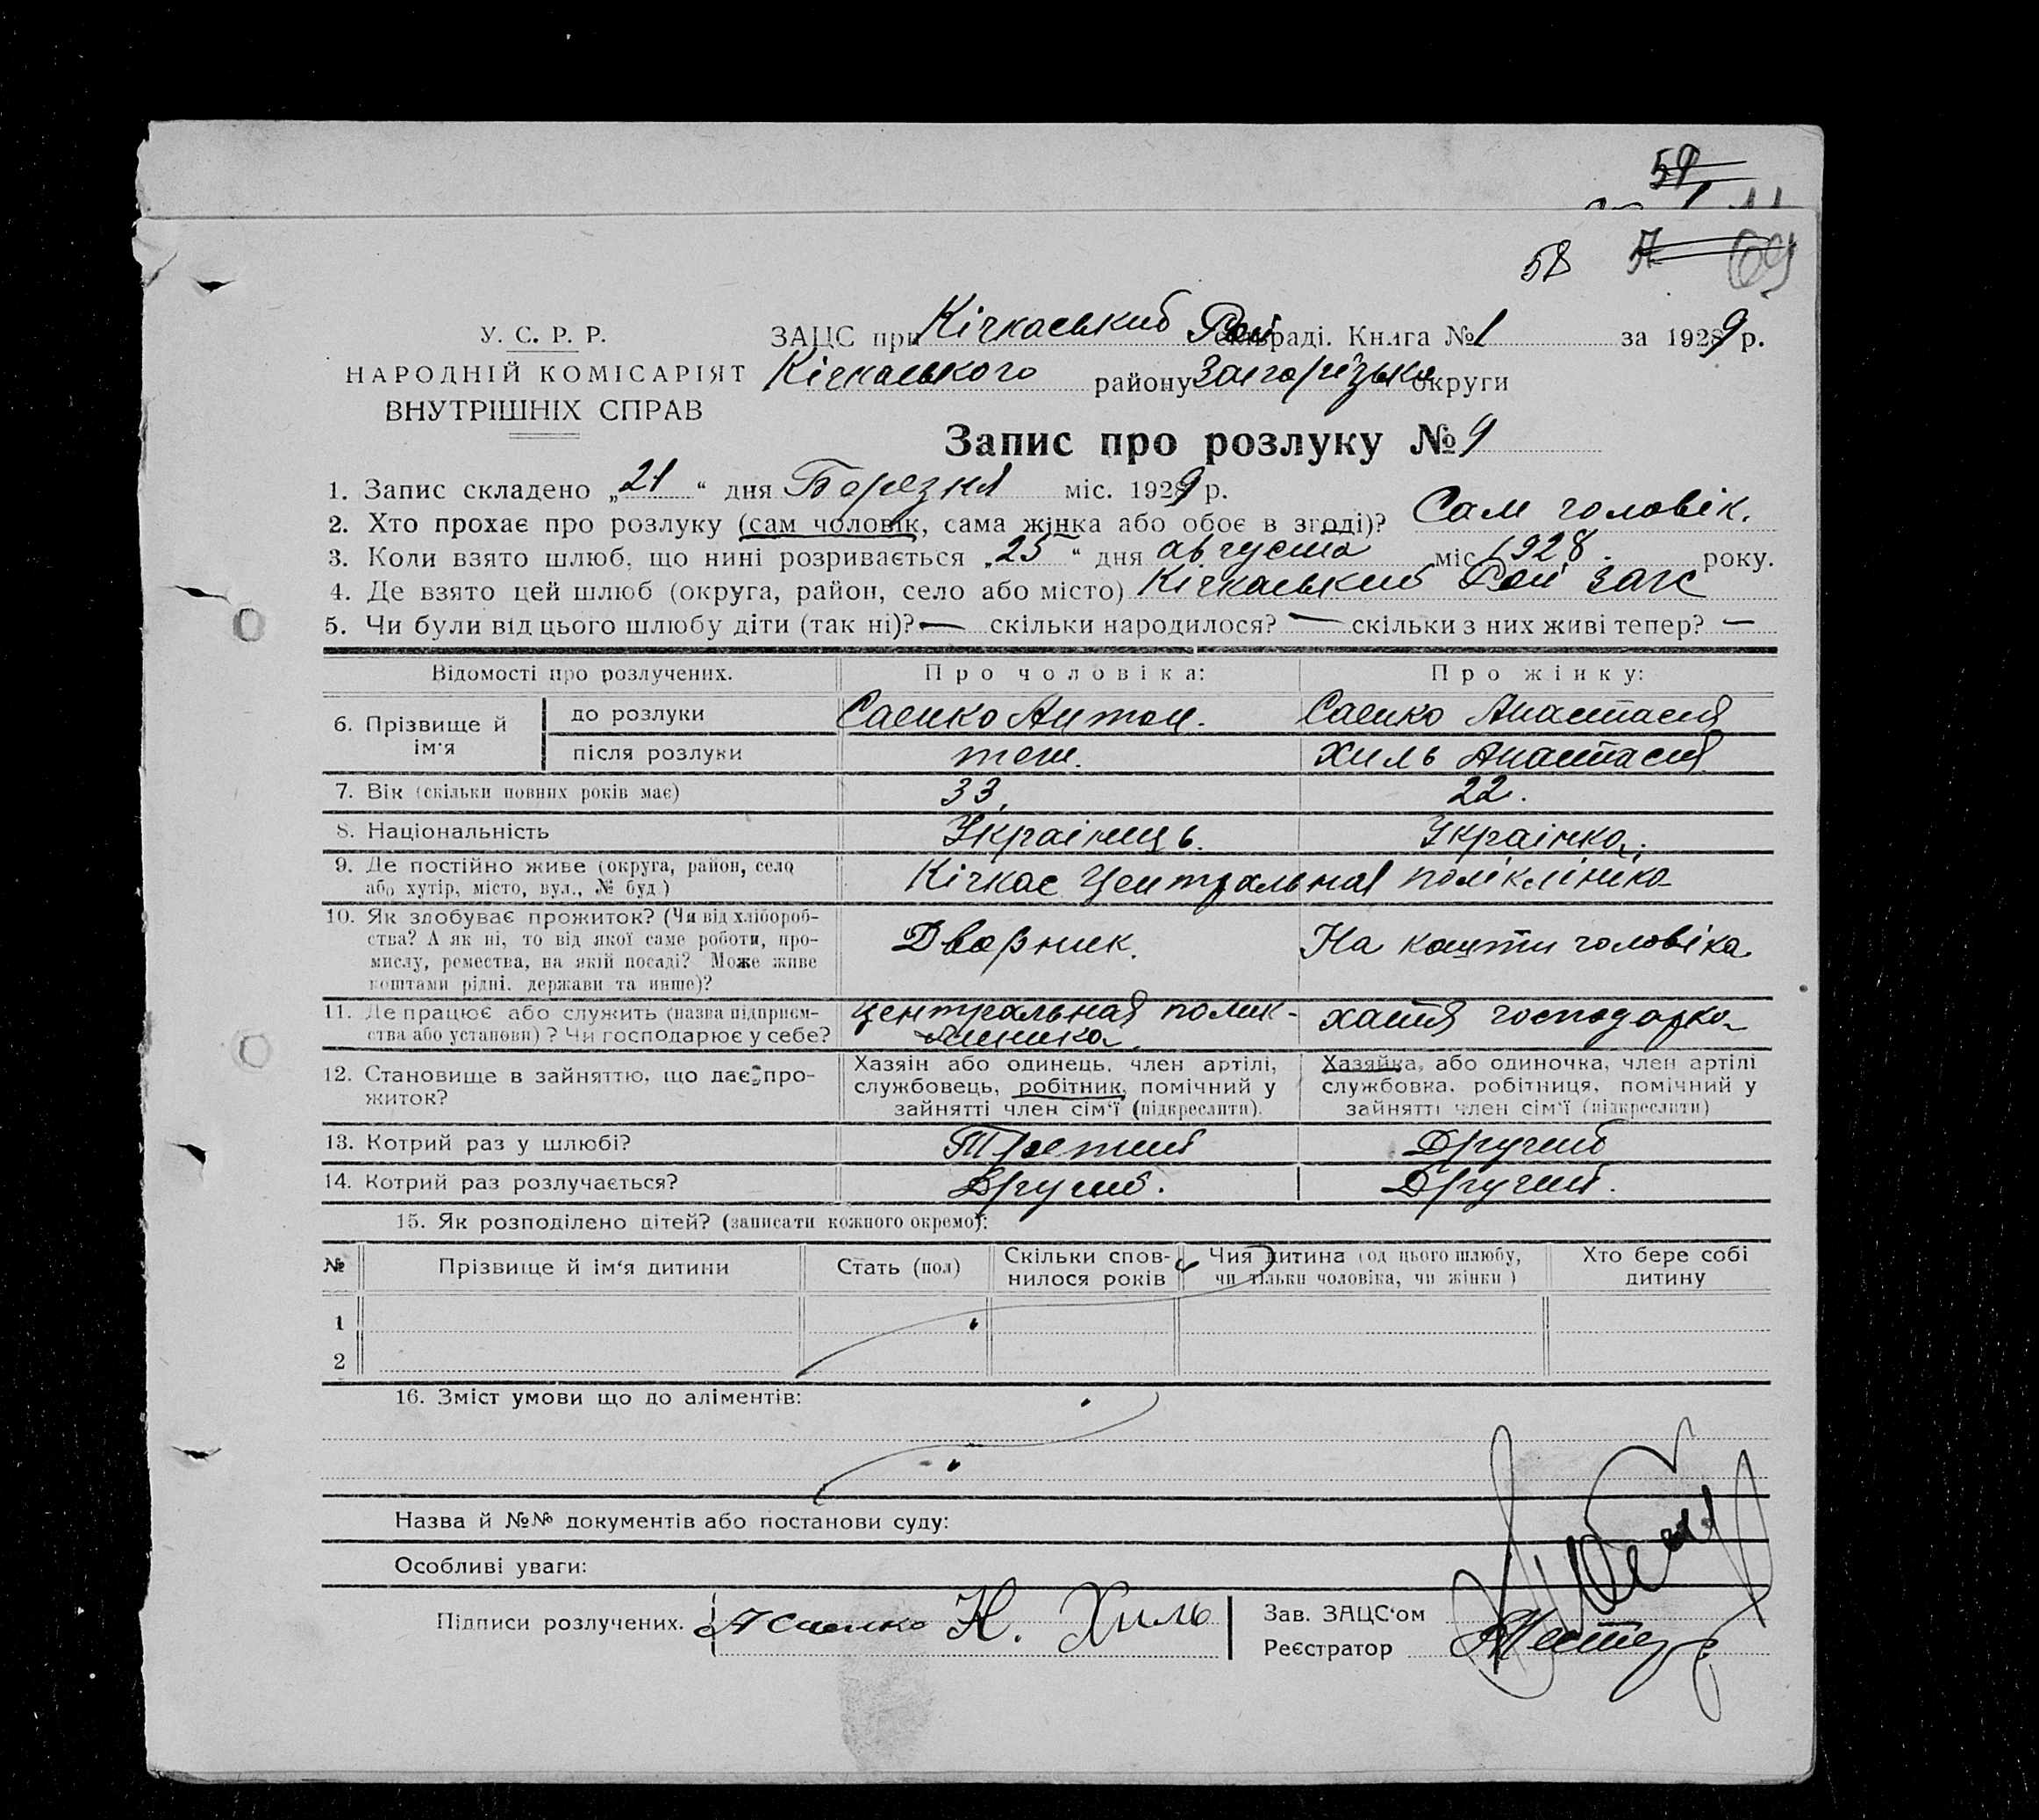 59
58 57 69
У. С. Р. Р.
НАРОДНІЙ КОМІСАРІЯТ
ВНУТРІШНІХ СПРАВ
ЗАЦС при Кічкаський Рай раді. Книга № 1 за 1929 р.
Кічкаського району Запорізької округи
Запис про розлуку № 9
1. Запис складено „21“ дня Березня міс. 1929 р.
2. Хто прохає про розлуку (сам чоловік, сама жінка або обоє в згоді)? Сам чоловік.
3. Коли взято шлюб, що нині розривається „25“ дня августа міс. 1928. року.
4. Де взято цей шлюб (округа, район, село або місто) Кічкаський Рай ЗАГС
5. Чи були від цього шлюбу діти (так ні)? — скільки народилося? — скільки з них живі тепер? —
Відомості про розлучених. Про чоловіка: Про жінку:
6. Прізвище й ім'я до розлуки Саенко Антон. Саенко Анастасия
після розлуки теж. Хиль Анастасия
7. Вік (скільки повних років має) 33. 22.
8. Національність Українець. Українка.
9. Де постійно живе (округа, район, село
або хутір, місто, вул., № буд.) Кічкас Центральная полікліника
10. Як здобуває прожиток? (Чи від хлібороб-
ства? А як ні, то від якої саме роботи, про-
мислу, ремества, на якій посаді? Може живе
коштами рідні, держави та инше)? Дворник. На кошти чоловіка
11. Де працює або служить (назва підприєм-
ства або установи)? Чи господарює у себе? Центральная полик-
линика. хатня господарка
12. Становище в зайняттю, що дає про-
житок?
Хазяін або одинець, член артілі,
службовець, робітник, помічний у
зайнятті член сім'ї (підкреслити).
Хазяйка, або одиночка, член артілі
службовка, робітниця, помічний у
зайнятті член сім'ї (підкреслити)
13. Котрий раз у шлюбі? Третий Другий
14. Котрий раз розлучається? Другий. Другий.
15. Як розподілено дітей? (записати кожного окремо):
№ Прізвище й ім'я дитини Стать (пол) Скільки спов-
нилося років Чия дитина (од цього шлюбу,
чи тільки чоловіка, чи жінки) Хто бере собі
дитину
1
2
16. Зміст умови що до аліментів:
Назва й №№ документів або постанови суду:
Особливі уваги:
Підписи розлучених. А Саенко Н. Хиль Зав. ЗАЦС'ом
Реєстратор